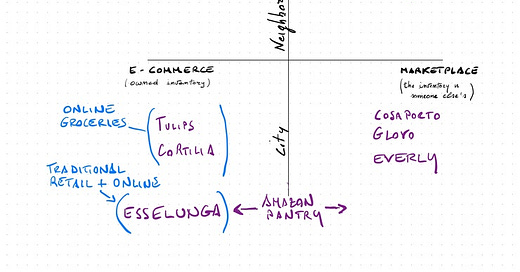 E-COMMERCE
(owned inventory)
MARKETPLACE
(the inventory is
someone else's)
ONLINE
GROCERIES
TULIPS
CORTILIA
City
COSAPORTO
GLOVO
EVERLY
TRADITIONAL
RETAIL + ONLINE
ESSELUNGA
AMAZON
PANTRY